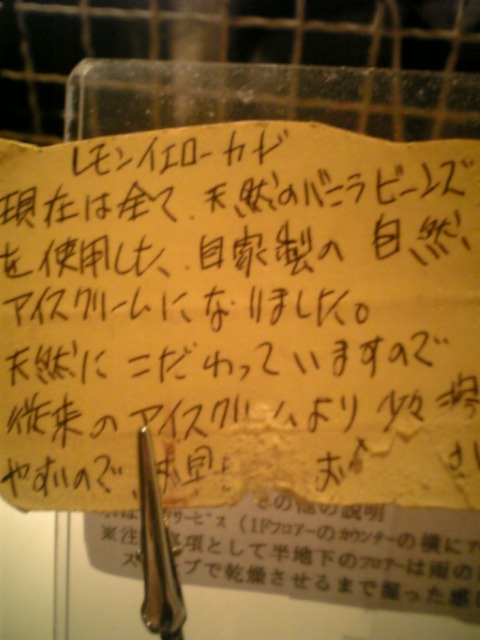 レモンイエローカド
現在は全て、天然のバニラビーンズ
を使用した、自家製の自然
アイスクリームになりました。
天然にこだわっていますので
従来のアイスクリームより少々溶
やすいので、お早
の他の説明
サービス (1Fフロアーのカウンターの横にア
※注 事項として半地下のフロアーは雨の
ブで乾燥させるまで湿った感